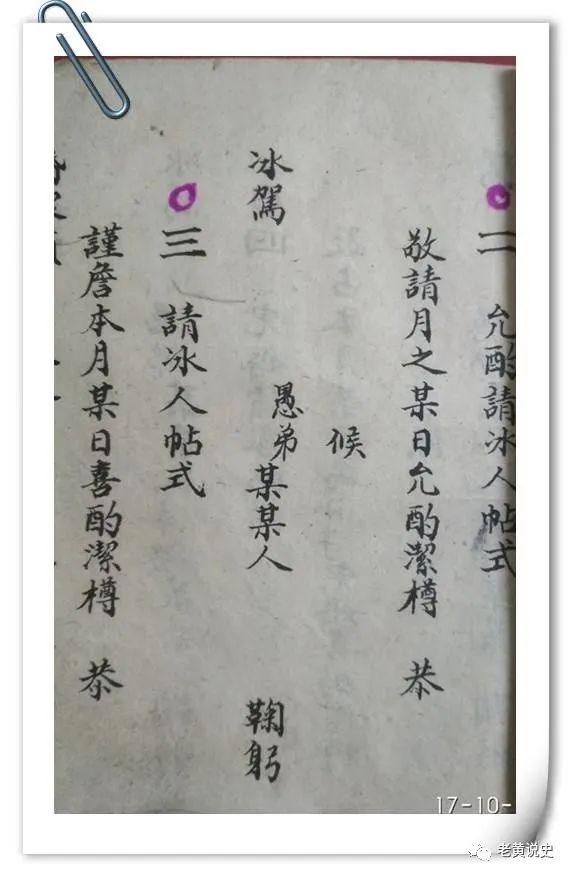 二 允酌請冰人帖式
敬請月之某日允酌潔樽 恭
候
冰駕 愚弟某某人 鞠躬
三 請冰人帖式
謹詹本月某日喜酌潔樽 恭
17-10-
老黄说史